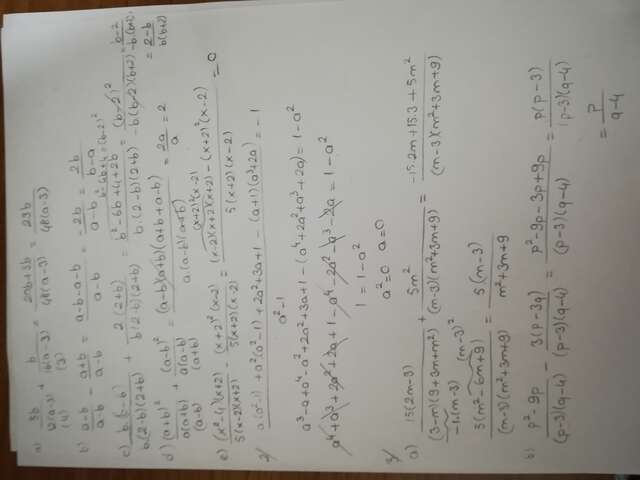 a) 5b/12(a-3) + b/16(a-3) = 20b+3b/48(a-3) = 23b/48(a-3)
(4) (3)
b) a-b/a-b - a+b/a-b = a-b-a-b/a-b = -2b/a-b = 2b/b-a
b²-4b+4=(b-2)²
2(2+b)/b(2-b)(2+b) = b²-6b+4+2b/b.(2-b)(2+b) = (b-2)²/-b(b-2)(b+2) = b-2/-b(b+2)
= 2-b/b(b+2)
d) (a+b)²/a(a+b) + (a-b)²/a(a-b) = (a-b)(a+b)(a+b+a-b)/a.(a-b)(a+b) = 2a/a = 2
(a-b) (a+b)
e) (x²-4)(x+2)/5(x-2)(x+2) - (x+2)²(x-2)/5(x+2)(x-2) = (x-2)(x+2)(x+2) - (x+2)²(x-2)/5(x+2)(x-2) = 0
(x+2)²(x-2)
2/ a²-1
a(a²-1) + a²(a²-1) + 2a²+3a+1 - (a+1)(a³+2a) = -1
a³-a+a⁴-a²+2a²+3a+1-(a⁴+2a²+a³+2a) = 1-a²
a⁴+a³+a²+2a+1-a⁴-2a²-a³-2a = 1-a²
1 = 1-a²
a²=0 a=0
3/
a) 15(2m-3)/(3-m)(9+3m+m²) + 5m²/(m-3)(m²+3m+9) = -15.2m+15.3+5m²/(m-3)(m²+3m+9)
-1.(m-3) (m-3)²
5(m²-6m+9)/(m-3)(m²+3m+9) = 5(m-3)/m²+3m+9
b) p²-9p/(p-3)(q-4) - 3(p-3q)/(p-3)(q-4) = p²-9p-3p+9p/(p-3)(q-4) = p(p-3)/(p-3)(q-4)
= p/q-4